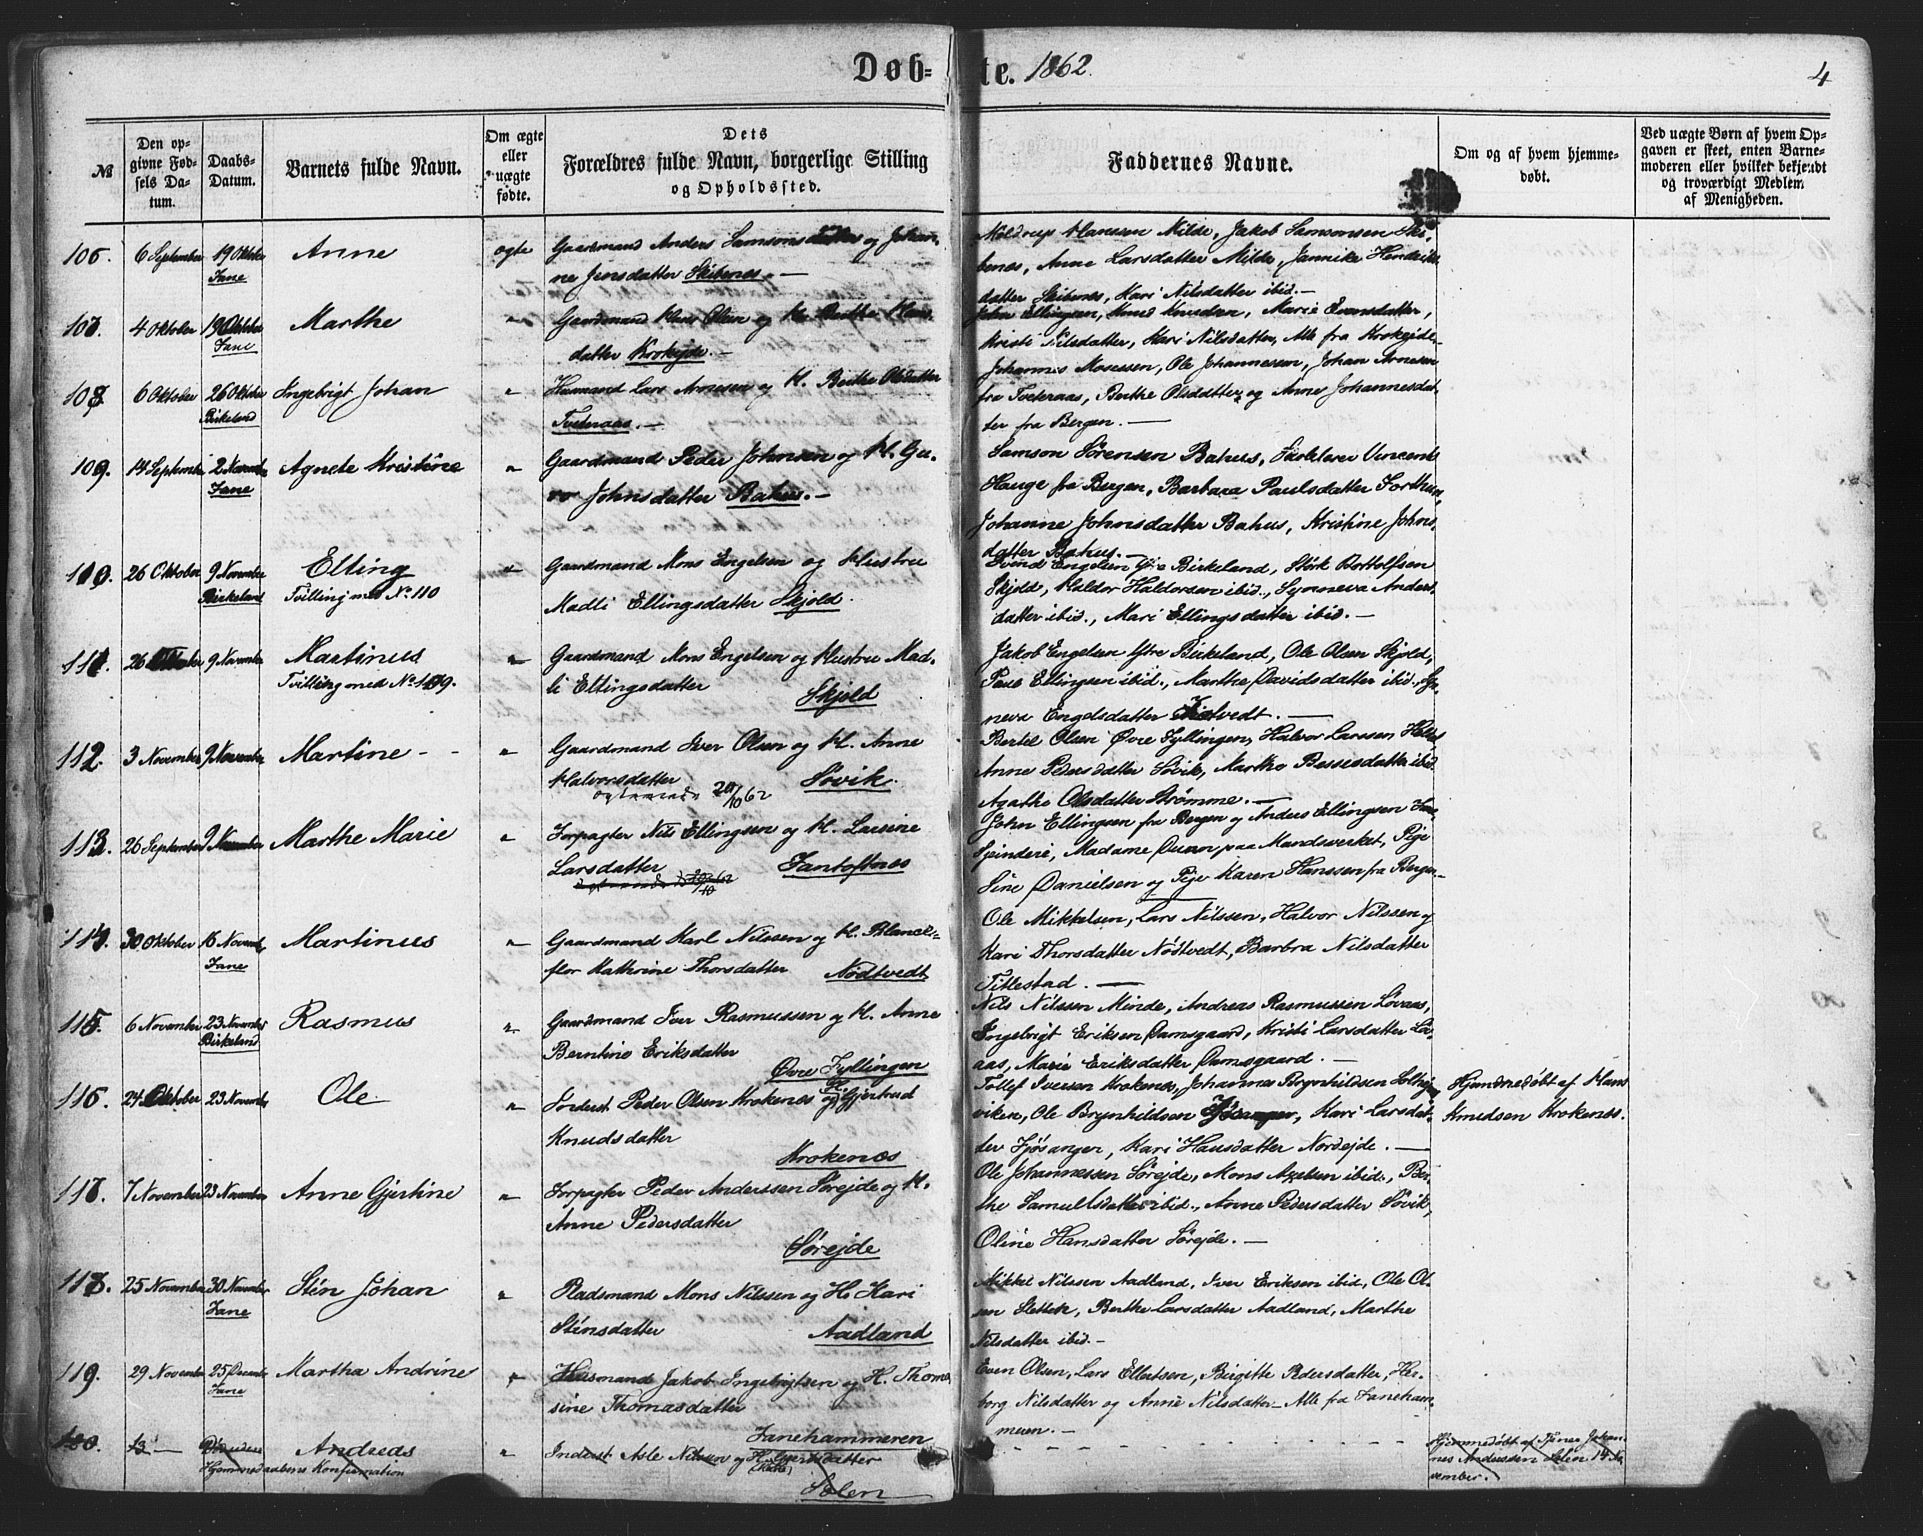 Døb=te. 1862. 4
№
Den opgivne Fødsels Datum.
Daabs-Datum.
Barnets fulde Navn.
Om ægte eller uægte fødte.
Dets Forældres fulde Navn, borgerlige Stilling og Opholdssted.
Faddernes Navne.
Om og af hvem hjemmedøbt.
Ved uægte Børn af hvem Opgaven er skeet, enten Barnemoderen eller hvilket bekjendt og troværdigt Medlem af Menigheden.
106. 6 September 19 Oktober Fane Anne ægte
Gaardmand Anders Samsons og Johanne Jensdatter Skibenes. —
Hansen Milde, Jakob Samsonsen Skibenes, Anne Larsdatter Milde, Jannike Hendriksdatter Skibenes, Kari Nilsdatter ibid. —
107. 4 Oktober 19 Oktober Fane Marthe "
Gaardmand Hans Olsen og H. Berthe Hansdatter Krokejde. —
John Ellingsen, Knud Knudsen, Marie Evensdatter,
Kristi Nilsdatter, Kari Nilsdatter, Alle fra Krokejde —
108. 6 Oktober 26 Oktober Birkeland Ingebrigt Johan "
Husmand Lars Arnesen og H. Berthe Olsdatter
Tveteraas. —
Johannes Mosessen, Ole Johannessen, Johan Arnesen
fra Tveteraas, Berthe Olsdatter og Anne Johannesdatter fra Bergen. —
109. 14 September 2 November Fane Agnete Kristine "
Gaardmand Peder Johnsen og H. Guro Johnsdatter Bahus. —
Samson Sørensen Bahus, Skolelærer Vincent
Hauge fra Bergen, Barbara Paulsdatter Forthun,
Johanne Johnsdatter Bahus, Kristine Johnsdatter Bahus. —
110. 26 Oktober 9 November Birkeland Elling "
Tvilling med No. 110
Gaardmand Mons Engelsen og Hustru
Madli Ellingsdatter Skjold.
Svend Engelsen Birkeland, Størk Bottolfsen
Skjold, Haldor Haldorsen ibid., Synneva Andersdatter ibid., Mari Ellingsdatter ibid. —
111. 26 Oktober 9 November Martinus "
Tvilling med No. 109.
Gaardmand Mons Engelsen og Hustru Madli Ellingsdatter Skjold
Jakob Engelsen Birkeland, Ole Olsen Skjold,
Paul Ellingsen ibid., Marthe Davidsdatter ibid., Syneva Engelsdatter —
112. 3 November 9 November Martine - - "
Gaardmand Iver Olsen og H. Anne
Halvorsdatter Søvik.
Bertel Olsen Øvre Fyllingen, Halvor Larssen
Anne Pedersdatter Søvik, Marthe Bessesdatter ibid.
Agathe Olsdatter Strømme. —
113. 26 September 9 November Marthe Marie "
Forpagter Nils Ellingsen og H. Larsine
Larsdatter Fantoftnes
John Ellingsen fra Bergen og Anders Ellingsen
Madame paa Mandsverket, Pige
Sine Danielsen og Pige Karen Hanssen fra Bergen. —
114. 30 Oktober 16 Novemb. Fane Martinus "
Gaardmand Karl Nilssen og H. Blanceflor Kathrine Thorsdatter Nødtvedt
Ole Mikkelsen, Lars Nilssen, Halvor Nilssen og
Kari Thorsdatter Nødtvedt, Barbra Nilsdatter
Titlestad. —
115. 6 November 23 November Birkeland Rasmus "
Gaardmand Iver Rasmussen og H. Anne
Berntine Eriksdatter
Øvre Fyllingen
Nils Nilssen Minde, Andreas Rasmussen Løvaas,
Ingebrigt Eriksen Damsgaard, Kristi Larsdatter Løvaas, Marie Eriksdatter Damsgaard. —
116. 24 Oktober 23 November Ole "
Inderst Peder Olsen Krokenes og H. Gjertrud
Knudsdatter
Krokenæs
Tollef Iversen Krokenæs, Johannes Brynhildsen
Ole Brynhildsen Kari Larsdatter Fjøsanger, Kari Hansdatter Nordejde. —
Hjemmedøbt af Hans
Knudsen Krokenæs.
117. 7 November 23 November Anne Gjertine "
Forpagter Peder Anderssen Sørejde og H.
Anne Pedersdatter
Sørejde
Ole Johannessen Sørejde, Mons ibid., Berthe Samuelsdatter ibid., Anne Pedersdatter Søvik,
Oline Hansdatter Sørejde. —
118. 25 November 30 November Fane Stén Johan "
Pladsmand Mons Nilssen og H. Kari
Sténsdatter Aadland
Mikkel Nilssen Aadland, Iver Eriksen ibid, Ole Olsen Sletten, Berthe Larsdatter Aadland, Marthe
Nilsdatter ibid. —
119. 29 November 25 Decemb. Fane Martha Andrine "
Husmand Jakob Ingebrigtsen og H. Thomasine Thomasdatter
Fanehammeren
Even Olsen, Lars Ellertsen, Birgitte Pedersdatter, Herborg Nilsdatter og Anne Nilsdatter — Alle fra Fanehammeren. —
120. 13 — Andreas "
Hjemmedaabens Konfirmation
Inderst Asle Nilssen og H. Gjertsdatter
Solen
Hjemmedøbt af Johannes Anderssen Solen 14 November.